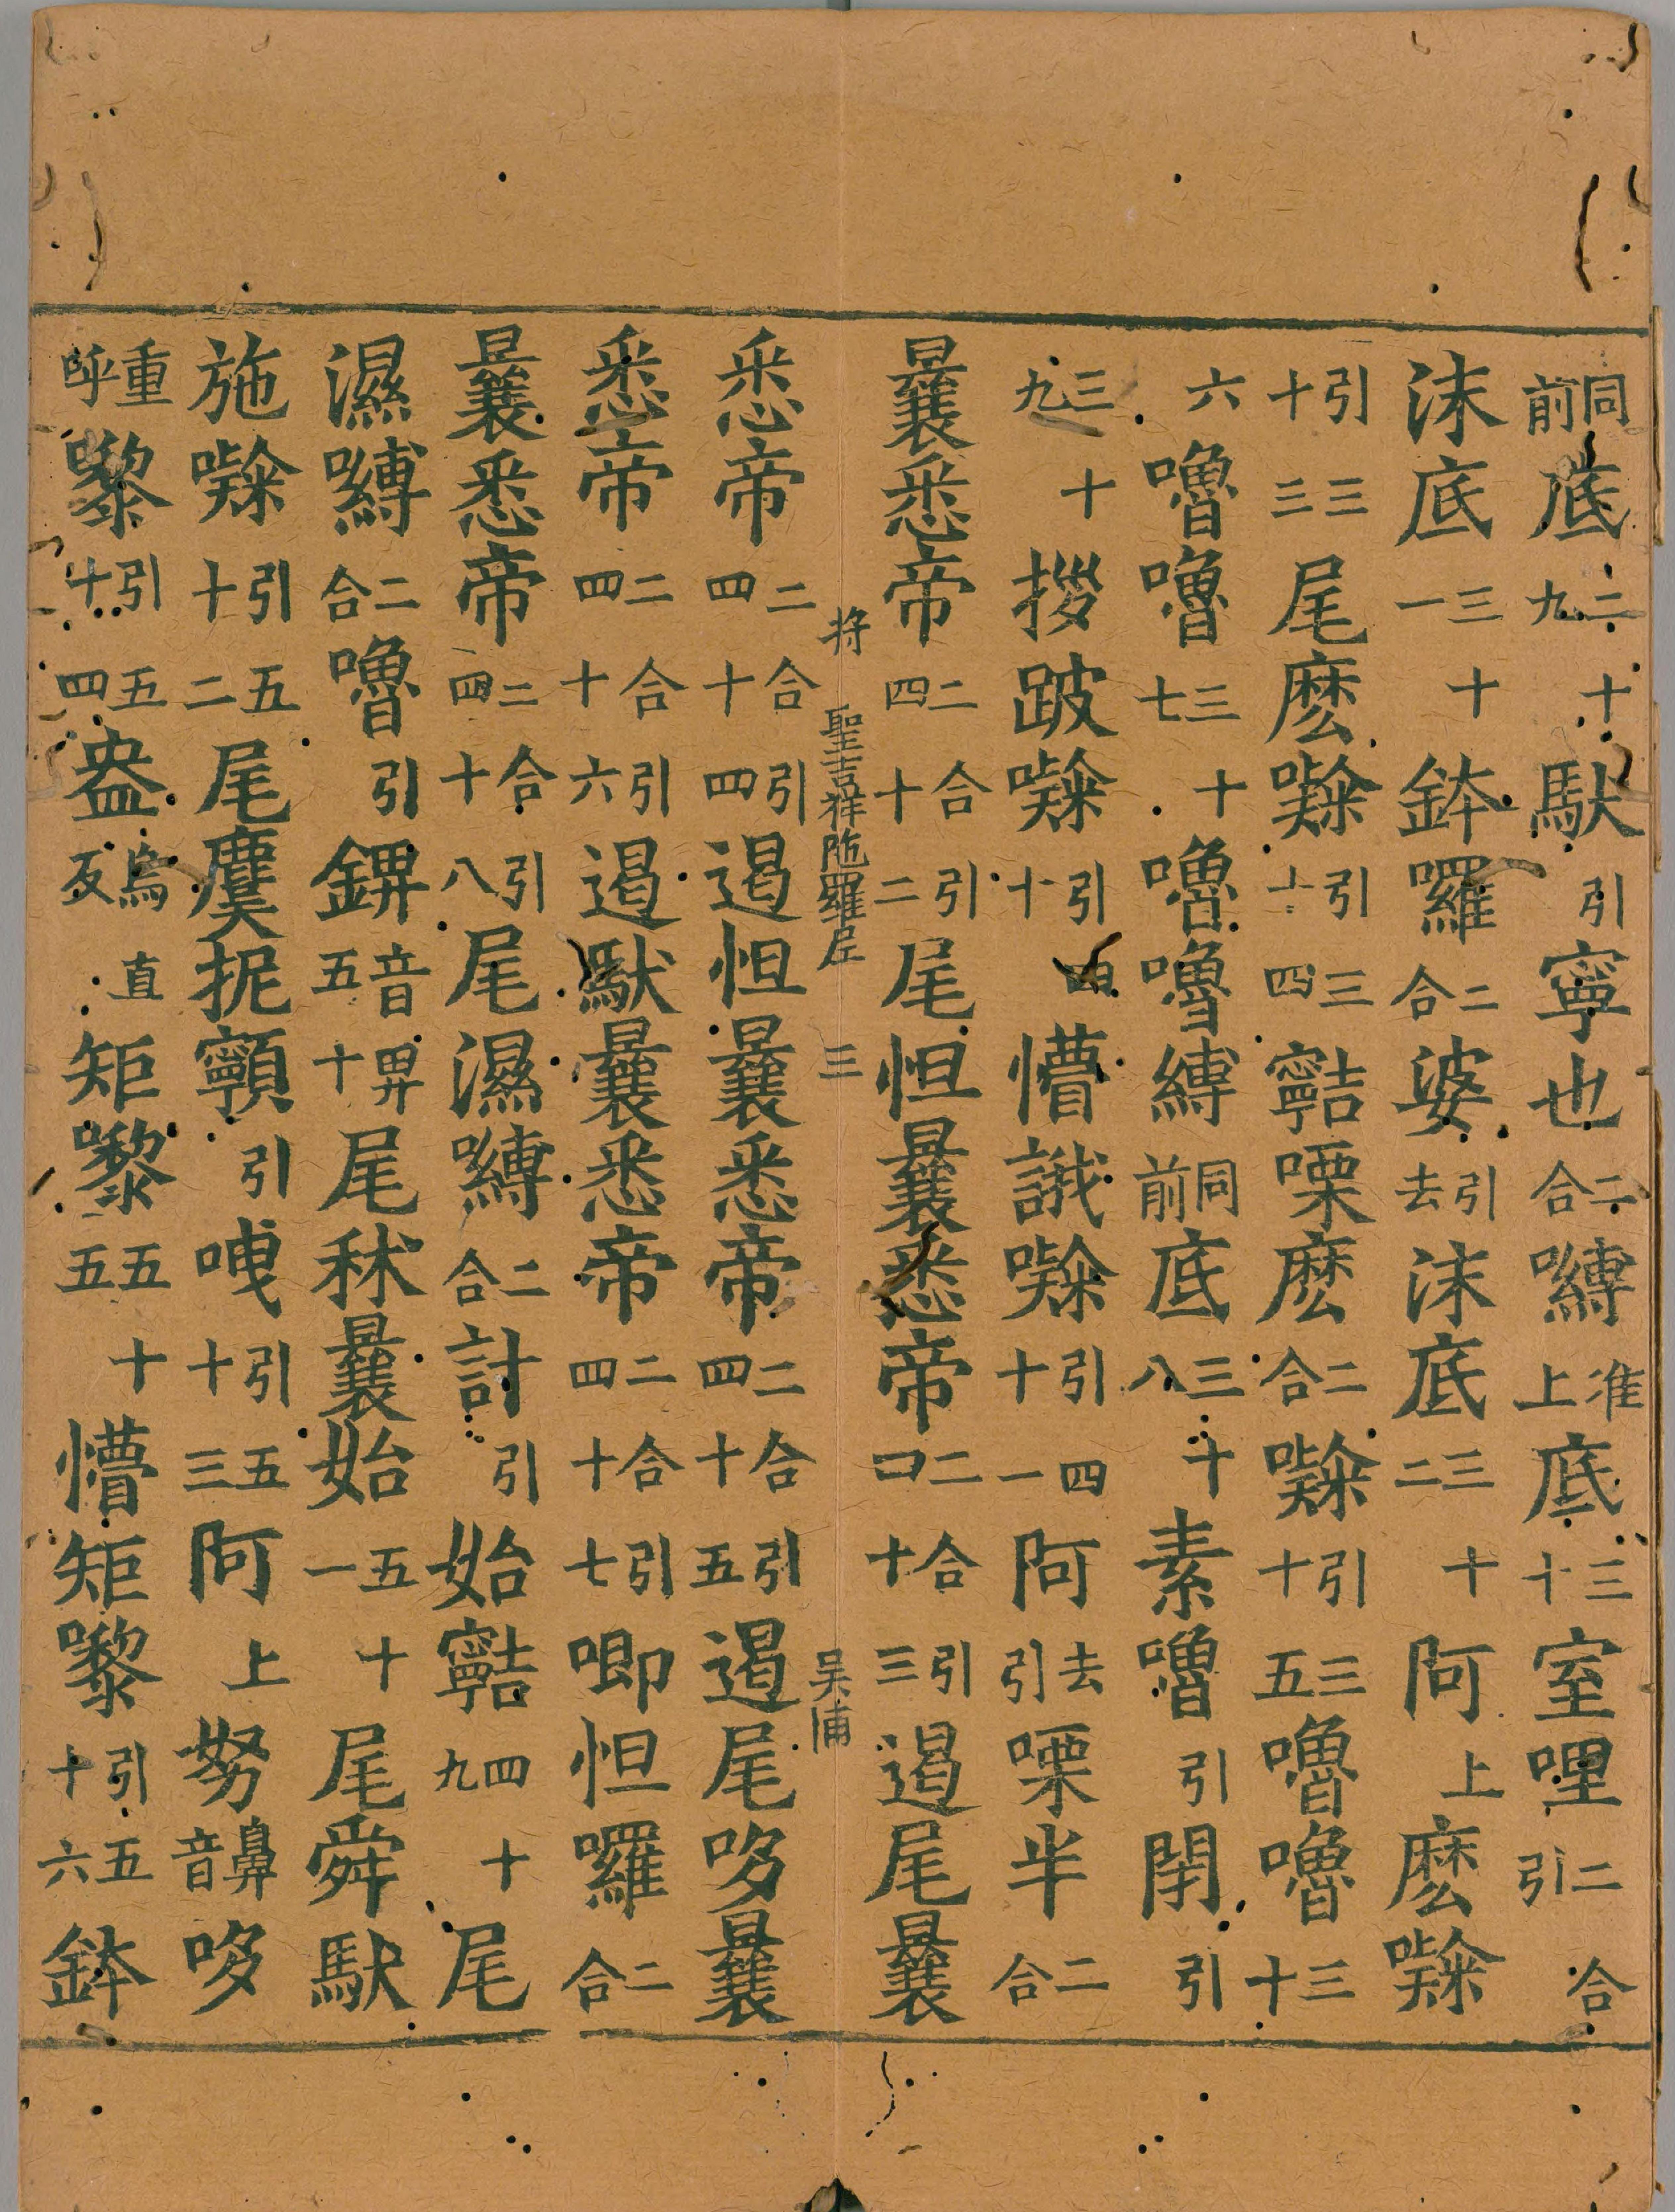 同前底二十九馱引寧也二合嚩准上底三十室哩二合引
沫底三十一鉢囉二合婆引去沫底三十二阿上麽㘑
引三十三尾麽㘑引三十四寧嚕麽二合㘑引三十五嚕嚕三十
六嚕嚕三十七嚕嚕縛同前底三十八素嚕引閉引
三十九拶跛㘑引四十懵誐㘑引四十一阿去引㗚半二合
曩悉帝二合引四十二尾怛曩悉帝二合引四十三遏尾曩
将 聖吉祥陁羅尼 三 吴浦
悉帝二合引四十四遏怛曩悉帝二合引四十五遏尾哆曩
悉帝二合引四十六遏馱曩悉帝二合引四十七唧怛囉二合
曩悉帝二合引四十八尾濕嚩二合計引始四十九尾
濕嚩二合嚕引錍音畀五十尾秫曩始五十一尾舜馱
施㘑引五十二尾虞抳引曳引五十三阿上努鼻音哆
重呼嚟引五十四盎烏反直矩嚟五十五懵矩嚟引五十六鉢